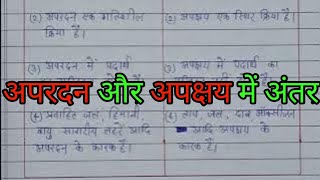 (2) अपरदन एक गतिशील
क्रिया है।
(2) अपक्षय एक स्थिर क्रिया है।
(3) अपरदन में पदार्थ
(3) अपक्षय में पदार्थ का
अपरदन और अपक्षय में अंतर
(4) प्रवाहित जल, हिमानी,
वायु, सागरीय लहरें आदि
अपरदन के कारक हैं।
(4) ताप, जल, दाब, ऑक्सीजन
आदि अपक्षय के
कारक हैं।